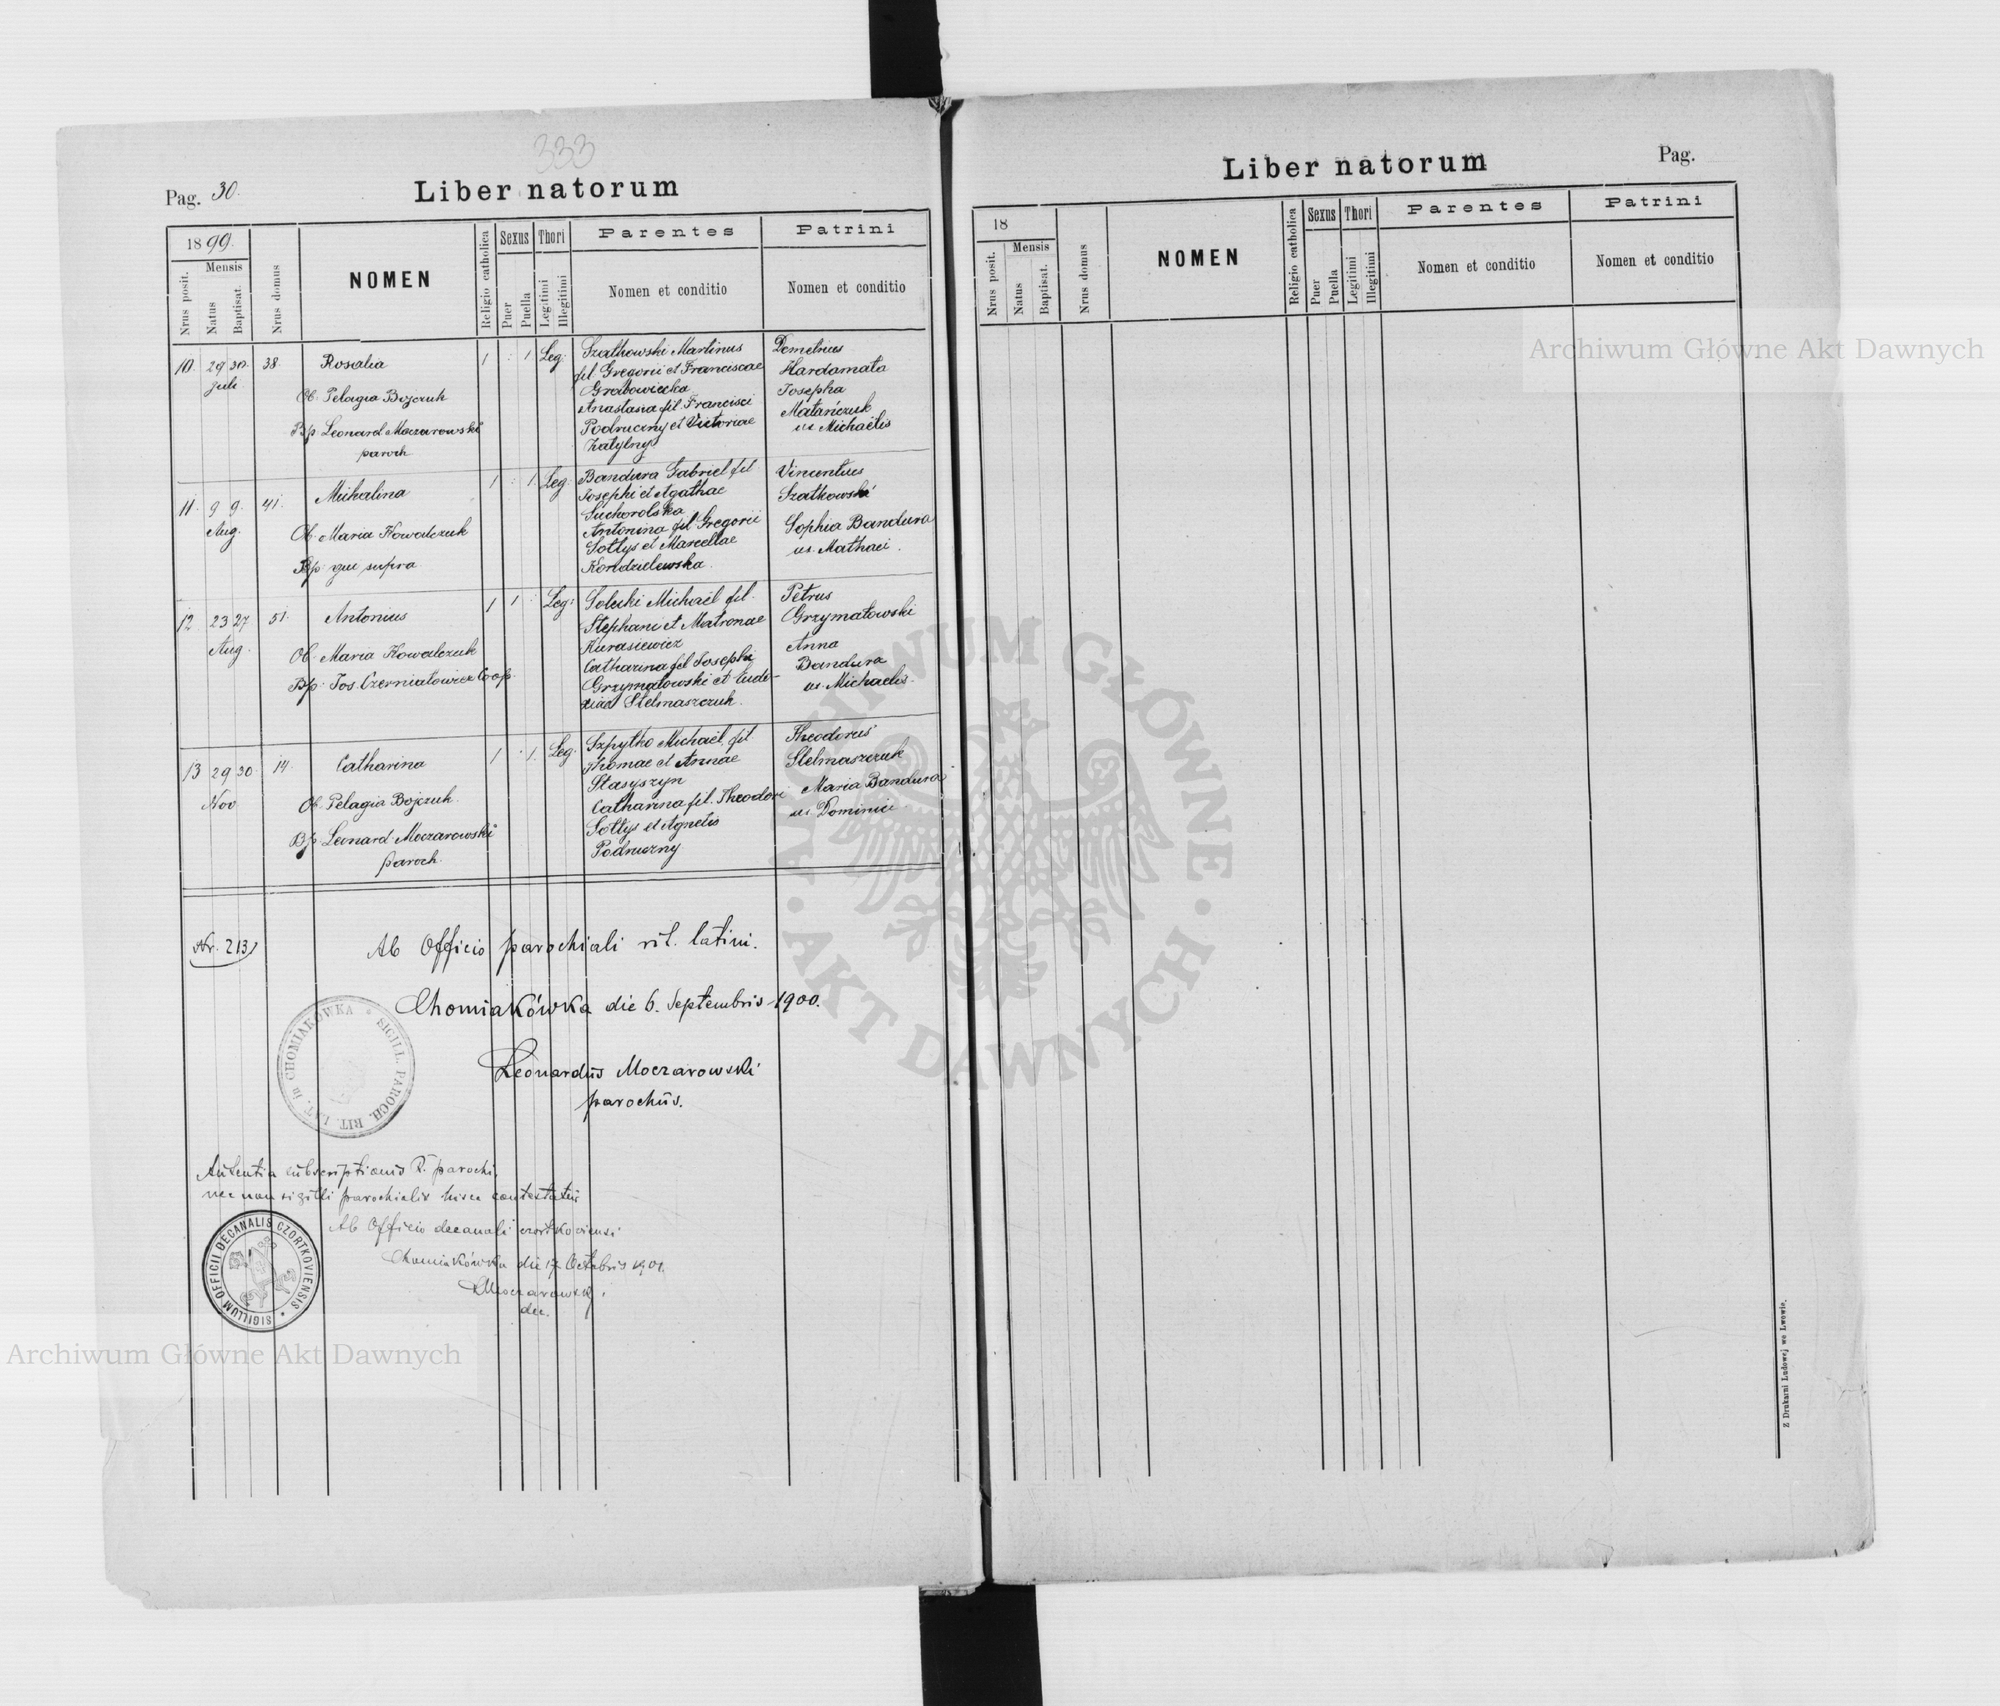 333
Pag. 30.
Liber natorum
1899.
Nrus posit.
Mensis
Natus
Baptisat.
Nrus domus
NOMEN
Religio catholica
Sexus
Puer
Puella
Thori
Legitimi
Illegitimi
Parentes
Nomen et conditio
Patrini
Nomen et conditio
10. 29 30. 38. Rosalia 1 : 1 Leg:
Juli
Ob. Pelagia Bojczuk
Bp. Leonard Moczarowski
paroch
Szatkowski Martinus
fil. Gregorii et Franciscae
Grabowiecka
Anastasia fil. Francisci
Podruczny et Victoriae
Zatylny
Demetrius
Hardamata
Josepha
Matańczuk
ux. Michaelis
11. 9 9. 41. Michalina 1 : 1. Leg:
Aug.
Ob. Maria Kowalczuk
Bp. qui supra
Bandura Gabriel fil
Josephi et Agathae
Suchorolska
Antonina fil Gregorii
Sołtys et Marcellae
Kondzielewska.
Vincentius
Szatkowski
Sophia Bandura
ux. Mathaei.
12. 23 27 51. Antonius 1 1 : Leg:
Aug.
Ob. Maria Kowalczuk
Bp. Jos. Czerniatowicz Coop.
Solecki Michaël fil.
Stephani et Matronae
Kurasiewicz
Catharina fil Josephi
Grzymałowski et Eudo-
xiae Stelmaszczuk.
Petrus
Grzymałowski
Anna
Bandura
ux. Michaelis.
13 29 30. 14. Catharina 1 : 1. Leg.
Nov
Ob. Pelagia Bojczuk.
Bp. Leonard Moczarowski
paroch.
Szpytko Michaël fil.
Thomae et Annae
Stasyszyn
Catharina fil. Theodori
Sołtys et Agnetis
Podruczny
Theodorus
Stelmaszczuk
Maria Bandura
ux. Dominici
Nr. 213/
Ab Officio parochiali rit. latini.
Chomiakówka die 6. Septembris 1900.
SIGILL. PAROCH. RIT. LAT. in CHOMIAKÓWKA
Leonardus Moczarowski
parochus.
subscriptionis R. parochi,
nec non sigilli parochialis hisce contestatur
Ab Officio decanali czortkoviensi
Chomiakówka die 17 Octobris 1901.
LMoczarowski
dec.
SIGILLUM OFFICII DECANALIS CZORTKOVIENSIS
Liber natorum
Pag.
18
Nrus posit.
Mensis
Natus
Baptisat.
Nrus domus
NOMEN
Religio catholica
Sexus
Puer
Puella
Thori
Legitimi
Illegitimi
Parentes
Nomen et conditio
Patrini
Nomen et conditio
Z Drukarni Ludowej we Lwowie.
Archiwum Główne Akt Dawnych
ARCHIWUM GŁÓWNE AKT DAWNYCH
Archiwum Główne Akt Dawnych